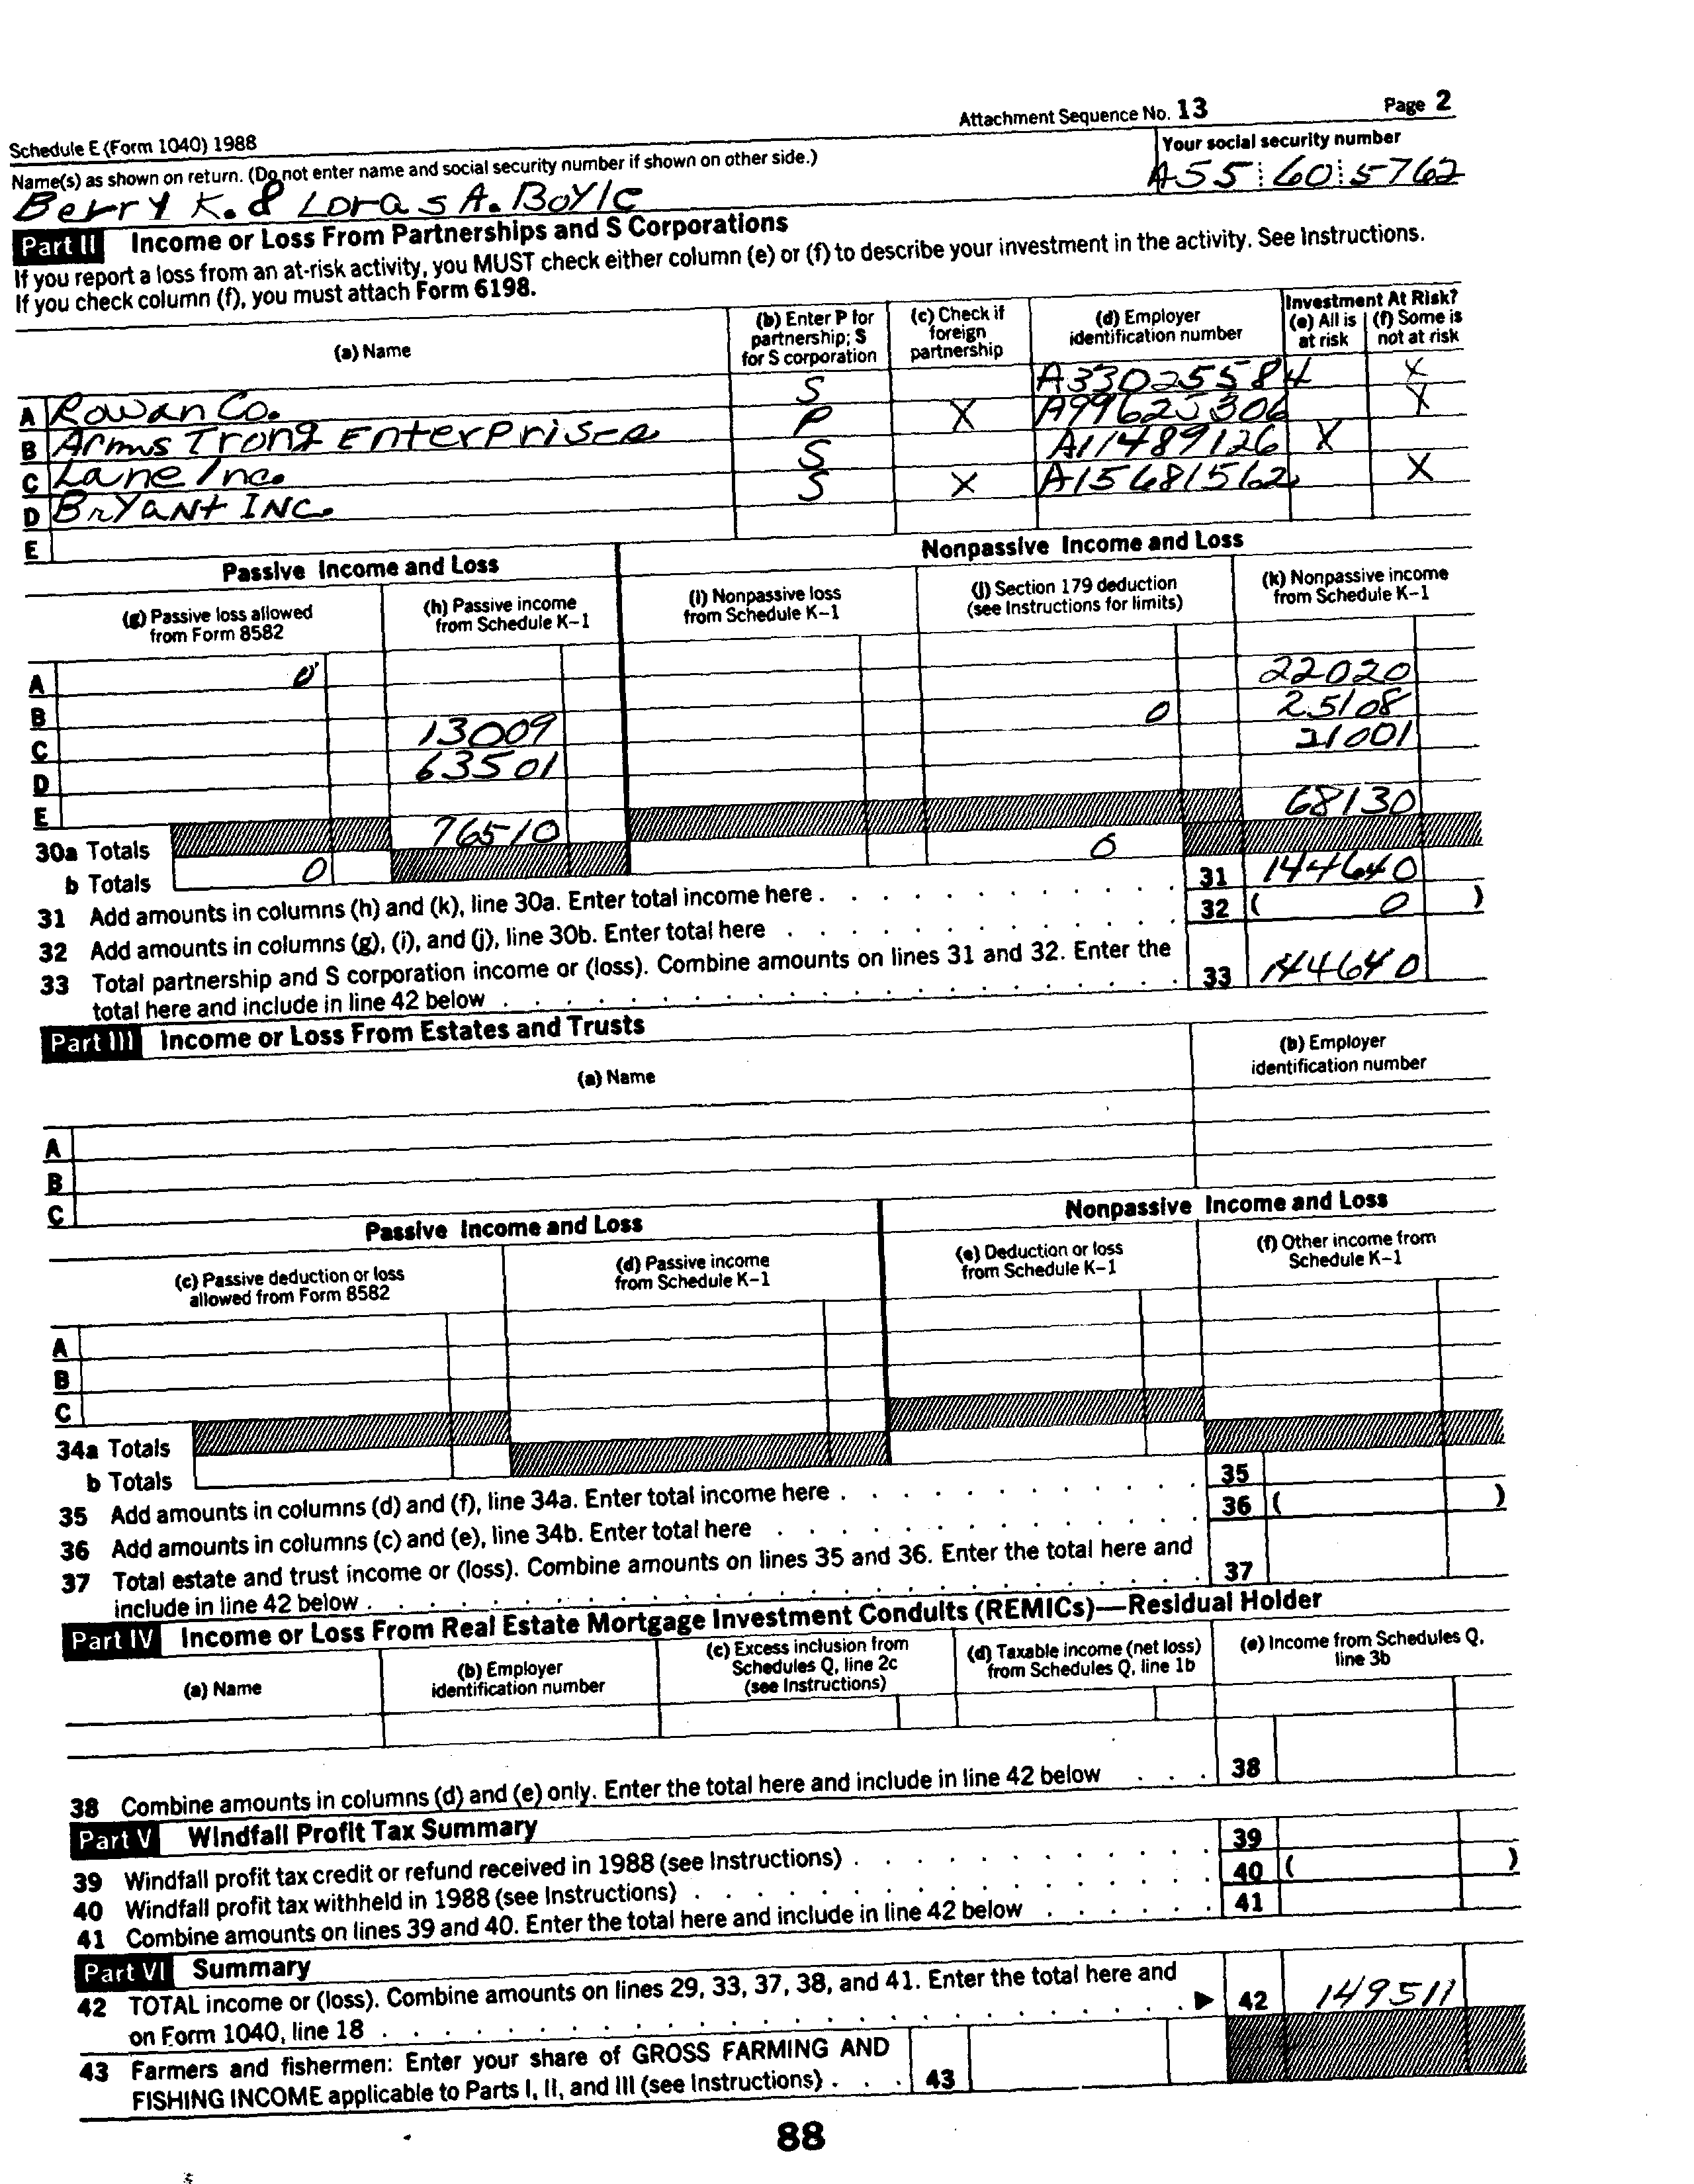 Attachment Sequence No. 13 Page 2
Schedule E (Form 1040) 1988
Name(s) as shown on return. (Do not enter name and social security number if shown on other side.) Your social security number
Berry K. & Loras A. Boyle A55 60 5762
Part II Income or Loss From Partnerships and S Corporations
If you report a loss from an at-risk activity, you MUST check either column (e) or (f) to describe your investment in the activity. See Instructions.
If you check column (f), you must attach Form 6198.
(a) Name (b) Enter P for partnership; S for S corporation (c) Check if foreign partnership (d) Employer identification number Investment At Risk? (e) All is at risk (f) Some is not at risk
A Rowan Co. S A33025584 X
B Arms Trong Enterprises P X A99625306 X
C Lane Inc. S A11489126 X
D Bryant INC. S X A15681562 X
E
Passive Income and Loss Nonpassive Income and Loss
(g) Passive loss allowed from Form 8582 (h) Passive income from Schedule K–1 (i) Nonpassive loss from Schedule K–1 (j) Section 179 deduction (see Instructions for limits) (k) Nonpassive income from Schedule K–1
A 0 22020
B 0 25108
C 13009 21001
D 63501
E
30a Totals 76510 68130
b Totals 0 0
31 Add amounts in columns (h) and (k), line 30a. Enter total income here . 31 144640
32 Add amounts in columns (g), (i), and (j), line 30b. Enter total here 32 ( 0 )
33 Total partnership and S corporation income or (loss). Combine amounts on lines 31 and 32. Enter the
total here and include in line 42 below 33 144640
Part III Income or Loss From Estates and Trusts
(a) Name (b) Employer identification number
A
B
C
Passive Income and Loss Nonpassive Income and Loss
(c) Passive deduction or loss allowed from Form 8582 (d) Passive income from Schedule K–1 (e) Deduction or loss from Schedule K–1 (f) Other income from Schedule K–1
A
B
C
34a Totals
b Totals
35 Add amounts in columns (d) and (f), line 34a. Enter total income here . 35
36 Add amounts in columns (c) and (e), line 34b. Enter total here 36 ( )
37 Total estate and trust income or (loss). Combine amounts on lines 35 and 36. Enter the total here and
include in line 42 below . 37
Part IV Income or Loss From Real Estate Mortgage Investment Conduits (REMICs)—Residual Holder
(a) Name (b) Employer identification number (c) Excess inclusion from Schedules Q, line 2c (see Instructions) (d) Taxable income (net loss) from Schedules Q, line 1b (e) Income from Schedules Q, line 3b
38 Combine amounts in columns (d) and (e) only. Enter the total here and include in line 42 below 38
Part V Windfall Profit Tax Summary
39 Windfall profit tax credit or refund received in 1988 (see Instructions) . 39
40 Windfall profit tax withheld in 1988 (see Instructions) 40 ( )
41 Combine amounts on lines 39 and 40. Enter the total here and include in line 42 below 41
Part VI Summary
42 TOTAL income or (loss). Combine amounts on lines 29, 33, 37, 38, and 41. Enter the total here and
on Form 1040, line 18 42 149511
43 Farmers and fishermen: Enter your share of GROSS FARMING AND
FISHING INCOME applicable to Parts I, II, and III (see Instructions) . 43
88